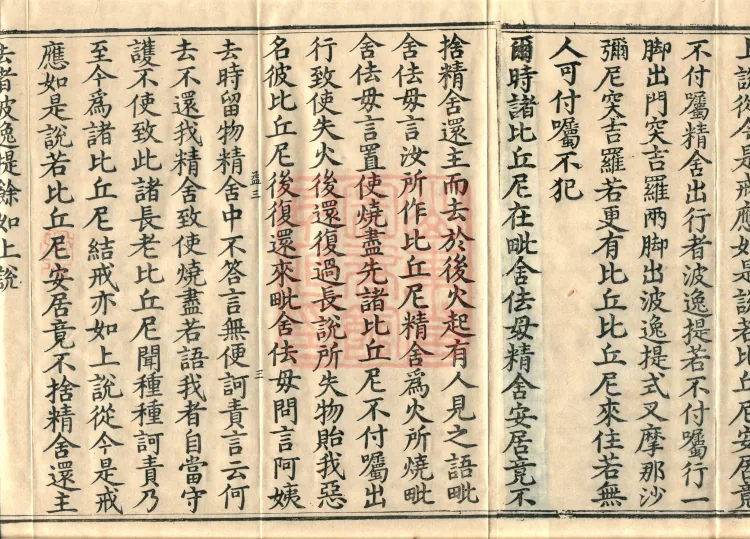 上說從今是戒應如是說若比丘尼安居竟
不付囑精舍出行者波逸提若不付囑行一
脚出門突吉羅兩脚出波逸提式叉摩那沙
彌尼突吉羅若更有比丘比丘尼來住若無
人可付囑不犯
爾時諸比丘尼在毗舍佉母精舍安居竟不
捨精舍還主而去於後火起有人見之語毗
舍佉母言汝所作比丘尼精舍爲火所燒毗
舍佉母言置使燒盡先諸比丘尼不付囑出
行致使失火後還復過長說所失物貽我惡
名彼比丘尼後復還來毗舍佉母問言阿姨
盈三
三
去時留物精舍中不答言無便訶責言云何
去不還我精舍致使燒盡若語我者自當守
護不使致此諸長老比丘尼聞種種訶責乃
至今爲諸比丘尼結戒亦如上說從今是戒
應如是說若比丘尼安居竟不捨精舍還主
去者波逸提餘如上說